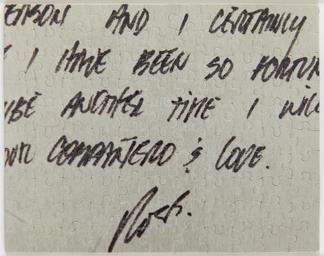 ERSON AND I CERTAINLY
I HAVE BEEN SO FORTUN
YBE ANOTHER TIME I WILL
OUR COMPAÑERO & LOVE.
Ross.